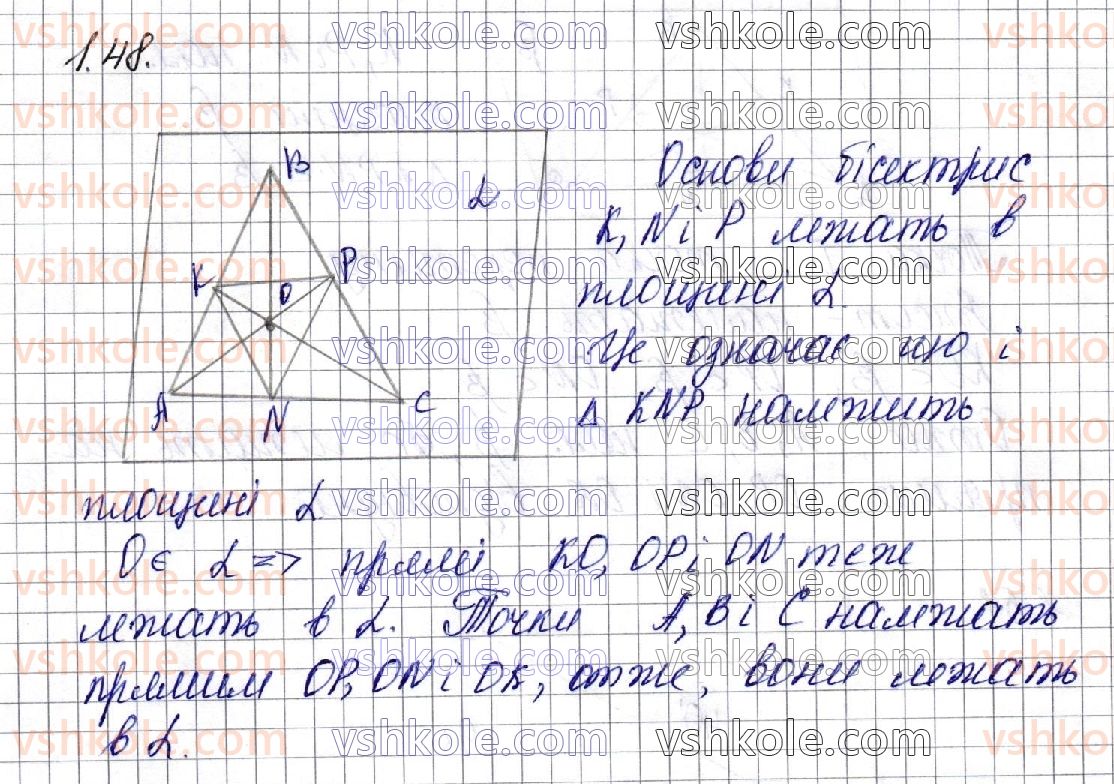 1.48.
B
L
K
P
O
A
N
C
Основи бісектрис
K, N і P лежать в
площині L.
Це означає що і
Δ KNP належить
площині L
O є L => прямі KO, OP і ON теж
лежать в L. Точки A, B і C належать
прямим OP, ON і OK, отже, вони лежать
в L.
vshkole.com